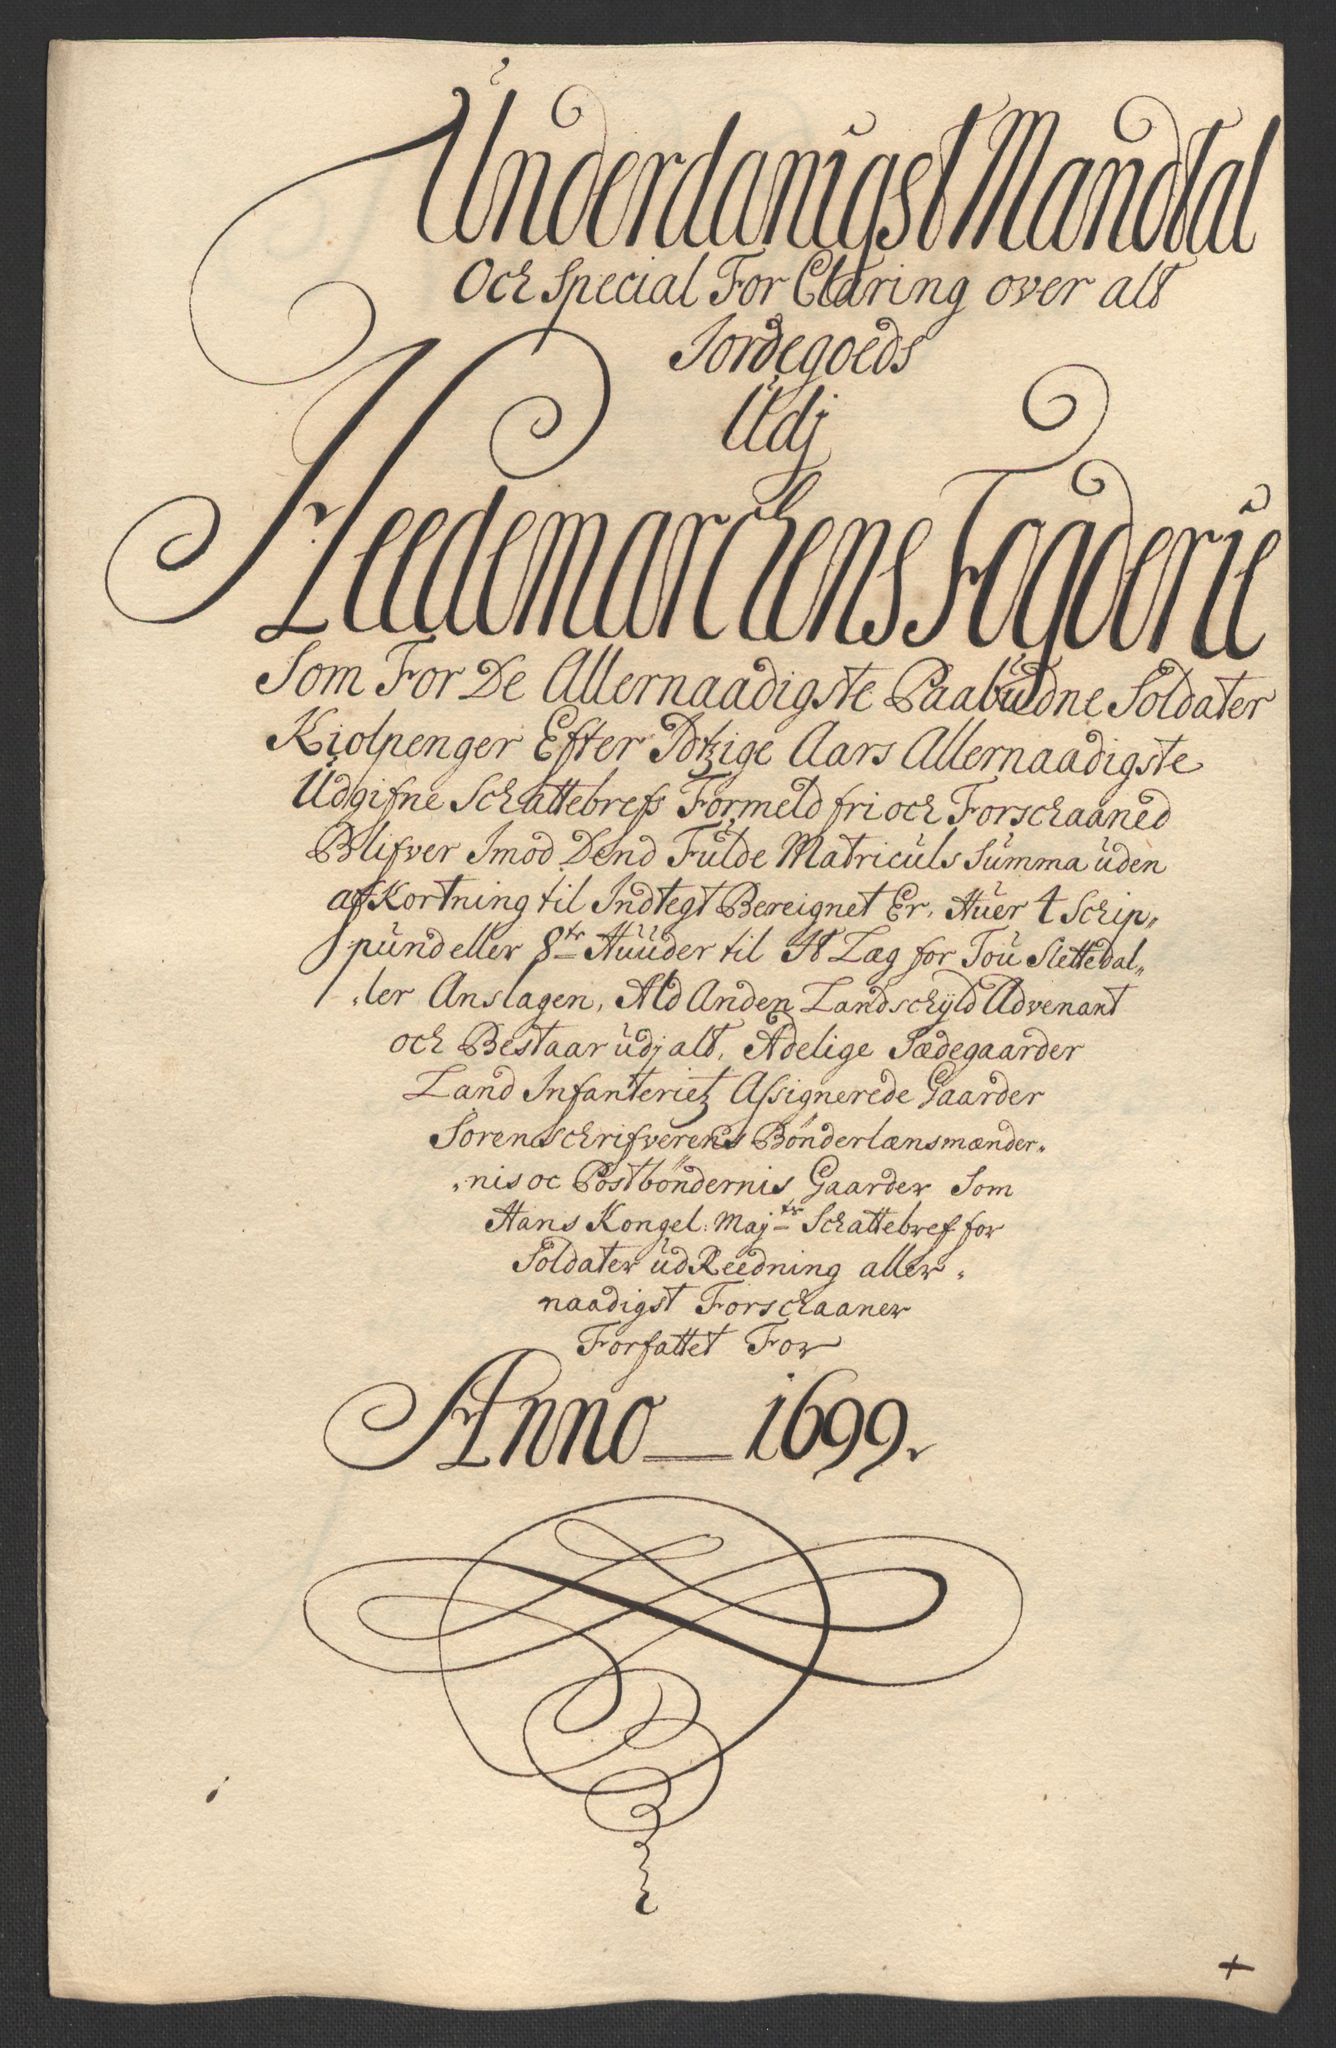 Underdanigst Mandtal
Och Special For Claring over alt
Jordegoeds
Udj
Heedemarchens Fogderie
Som For De Allernaadigste Paabudne Soldater
Kiolpenger Efter Jdtzige Aars Allernaadigste
Udgifne Schattebrefs Formeld fri och Forschaaned
Blifver Jmod Dend Fulde Matriculs Summa uden
afKortning til Jndtegt Bereignet Er, Huer 4 Schip„
pund eller 8tr Huuder til It Læg for Tou Slettedal„
„ler Anslagen, Ald Anden Landschyld Advenant
och Bestaar udj alt, Adelige Sædegaarder
Land Infanterietz Assignerede Gaarder
Sorenschrifverens Bönderlænsmænder„
„nis oc Postböndernis Gaarder Som
Hans Kongel: Majtz Schattebref for
Soldater udReedning aller„
naadigst Forschaaner
Forfattet For
Anno 1699.